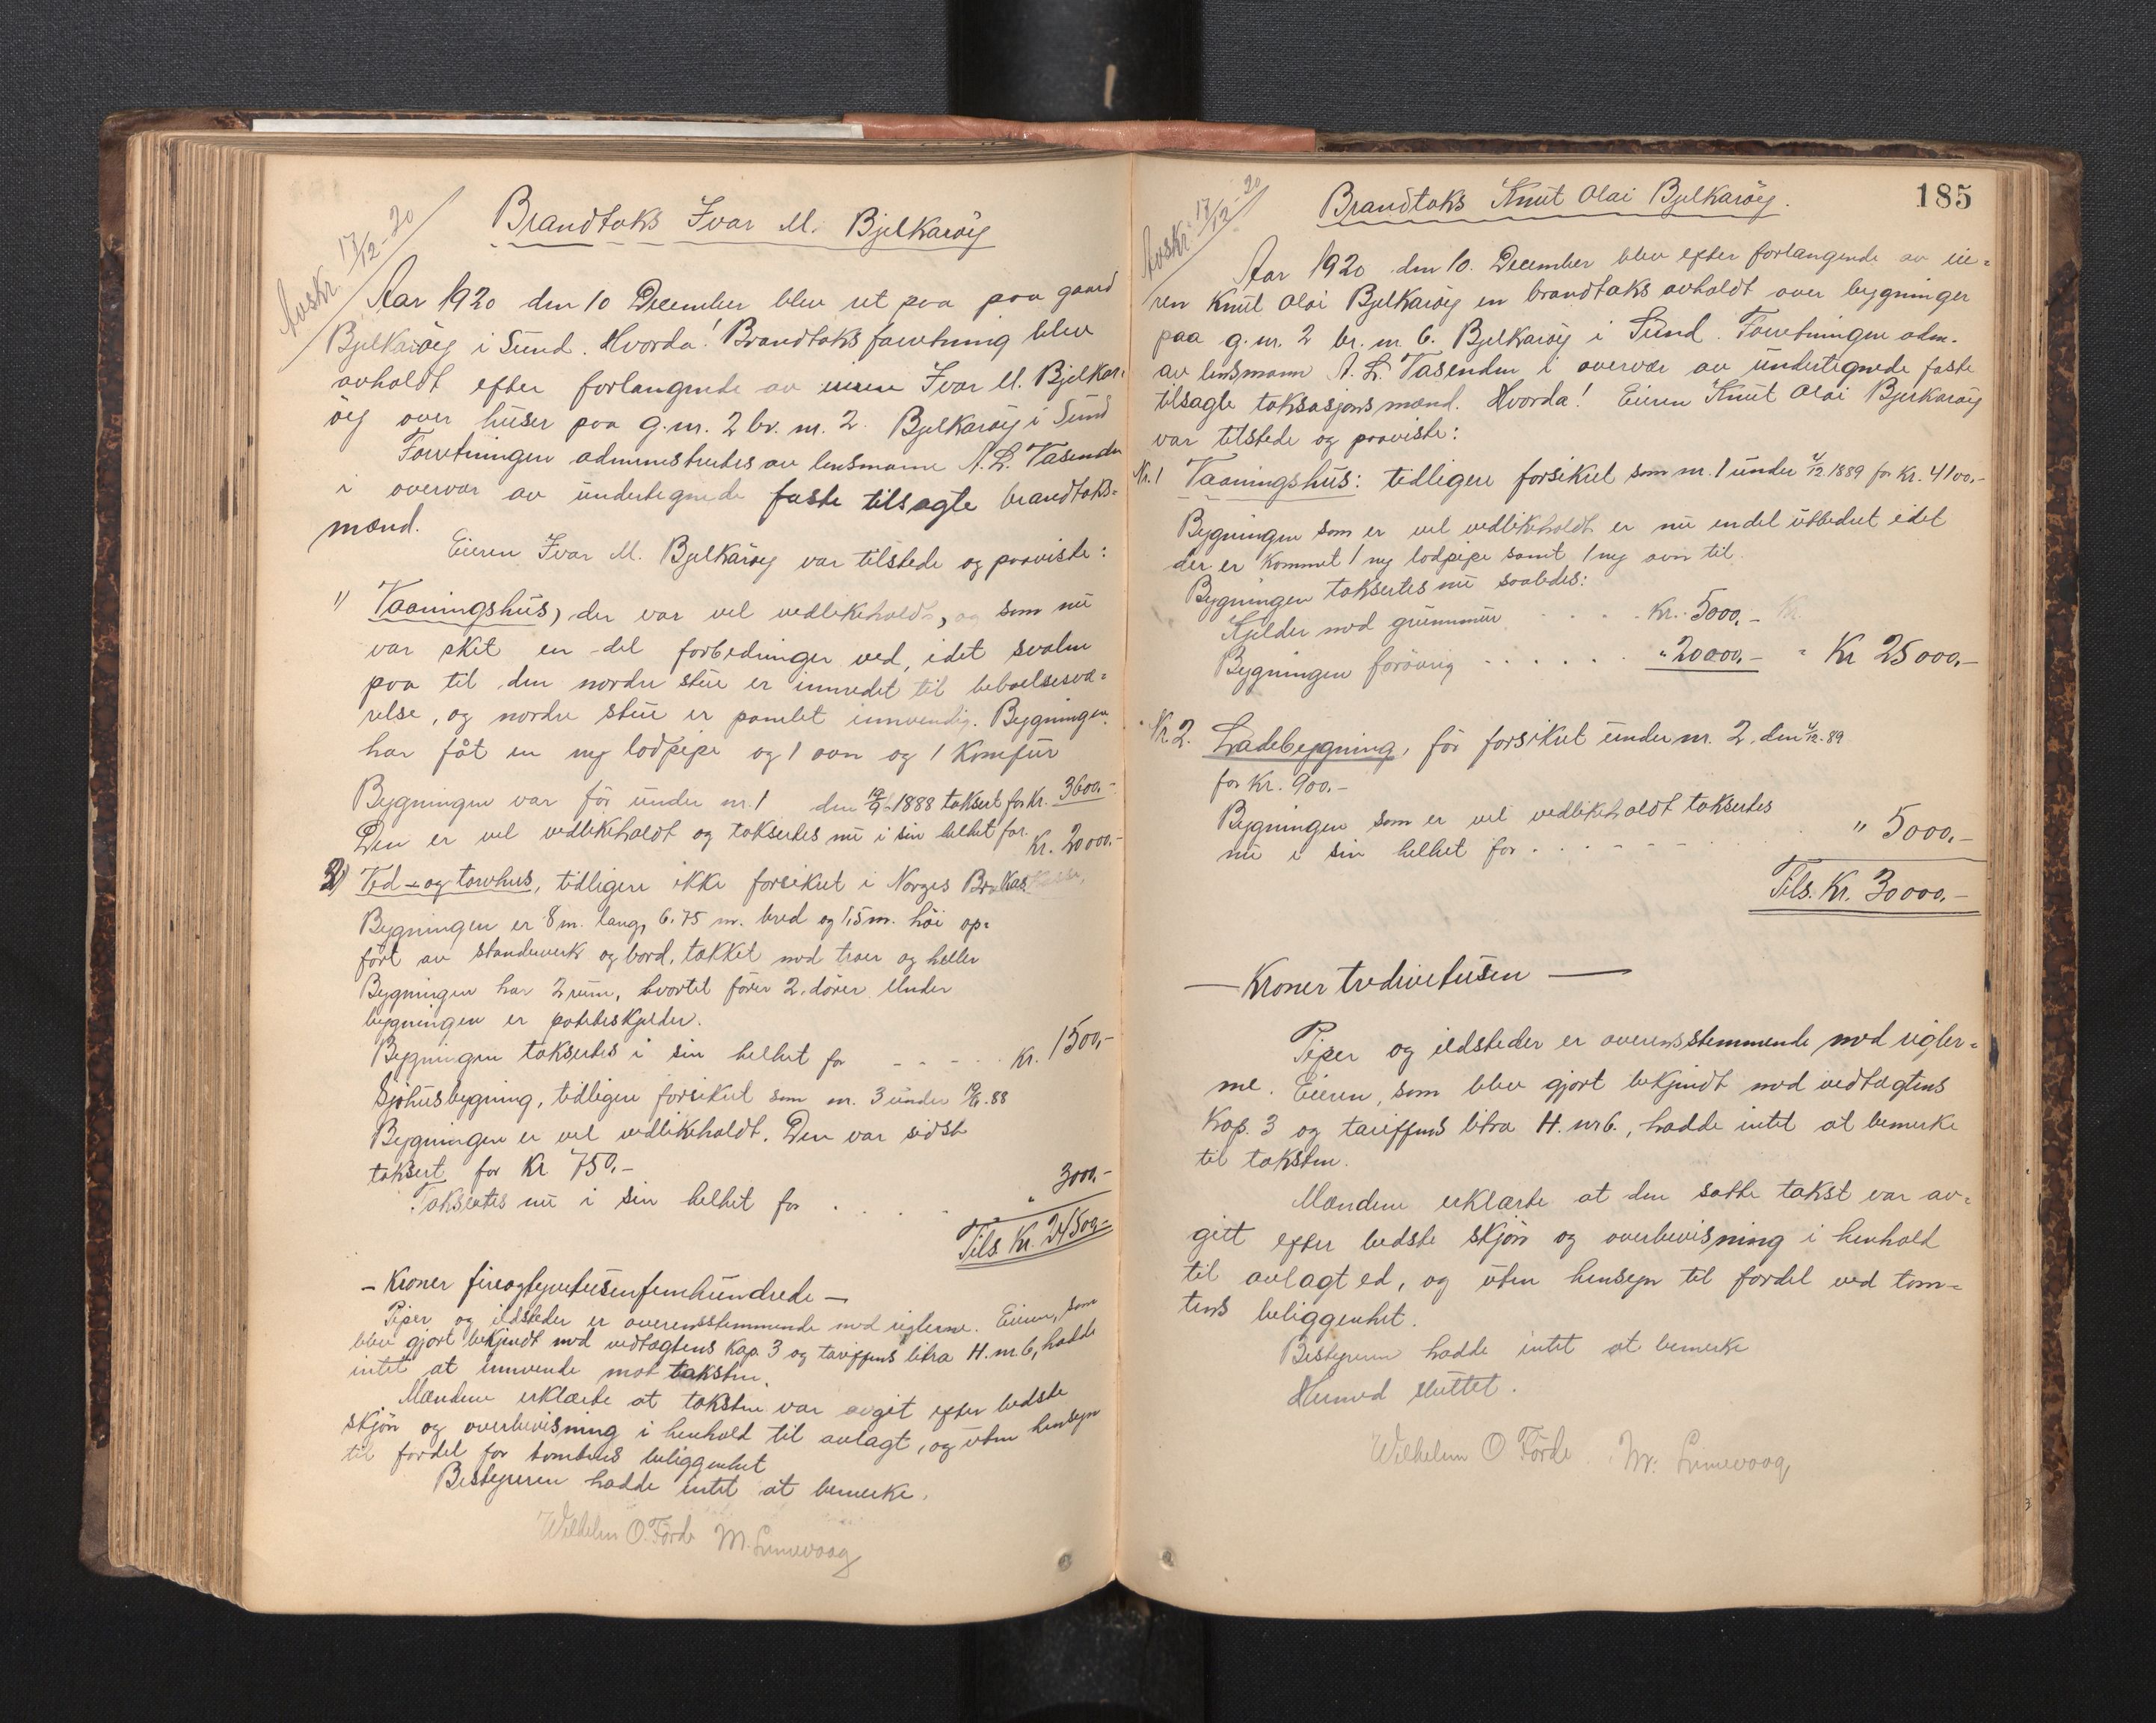 Avskr. 17/12-20
Brandtaks Ivar M. Bjelkarøy
Aar 1920 den 10 December blev ret paa paa gaard
Bjelkarøy i Sund. Hvorda! Brandtaksforretning blev
avholdt efter forlangende av eieren Ivar M. Bjelkar-
øy over huser paa g.nr. 2 br. nr. 2. Bjelkarøy i Sund
Forretningen administrertes av lensmann A. L. Vasenden
i overvær av undertegnede faste tilsagte brandtaks-
mænd.
Eieren Ivar M. Bjelkarøy var tilstede og paaviste:
1) Vaaningshus, der var vel vedlikeholdt, og som nu
var sket en del forbedringer ved, idet svalen
paa til den nordre stue er innredet til beboelsesvæ-
relse, og nordre stue er panelet innvendig. Bygningen
har fåt en ny lodpipe og 1 ovn og 1 komfur
Bygningen var før under nr. 1 den 19/9 1888 taksert for kr. 3600,-
Den er vel vedlikeholdt og taksertes nu i sin helhet for kr. 20000,-
2) Ved- og torvhus, tidligere ikke forsikret i Norges Br.kasse,
Bygningen er 8 m. lang, 6.75 m. bred og 1,5 m. høi op-
ført av standerverk og bord, takket med traer og heller
Bygningen har 2 rum, hvortil fører 2 dører. Under
bygningen er poteteskjelder.
Bygningen taksertes i sin helhet for - - - - kr. 1500,-
Sjøhusbygning, tidligere forsikret som nr. 3 under 19/9.88
Bygningen er vel vedlikeholdt. Den var sidst
taksert for Kr 750,-
Taksertes nu i sin helhet for . . . . " 3000,-
Tils Kr. 24500,-
- Kroner fireogtyvetusenfemhundrede -
Piper og ildsteder er overensstemmende med reglerne. Eieren, som
blev gjort bekjendt med vedtægtens Kap. 3 og tariffens litra H. nr. 6, hadde
intet at innvende mot taksten.
Mændene erklærte at taksten var avgit efter bedste
skjøn og overbevisning i henhold til avlagt, og uten hensyn
til fordel for tomtens beliggenhet
Bestyreren hadde intet at bemerke.
Wilhelm O. Førde M. Linnevaag
185
Avskr. 17/12-20
Brandtaks Knut Olai Bjelkarøy.
Aar 1920 den 10. December blev efter forlangende av eie-
ren Knut Olai Bjelkarøy en brandtaks avholdt over bygninger
paa g.nr. 2 br. nr 6. Bjelkarøy i Sund. Forretningen adm.
av lensmann A. L. Vasenden i overvær av undertegnede faste
tilsagte taksasjonsmænd. Hvorda! Eieren Knut Olai Bjelkarøy
var tilstede og paaviste:
Nr. 1 Vaaningshus: tidligere forsikret som nr. 1 under 4/12 1889 for kr. 4100,-
Bygningen som er vel vedlikeholdt er nu endel utbedret idet
der er kommet 1 ny lodpipe samt 1 ny ovn til.
Bygningen taksertes nu saaledes:
Kjelder med grunnmur . . . . Kr. 5000,-
Bygningen forøvrig . . . . . . " 20000,- = Kr 25000,-
Nr 2. Ladebygning, før forsikret under nr. 2 den 4/12-89
for Kr. 900,-
Bygningen som er vel vedlikeholdt taksertes
nu i sin helhet for . . . . . . " 5000,-
Tils. Kr. 30000,-
- Kroner tredivetusen -
Piper og ildsteder er overensstemmende med regler-
ne. Eieren, som blev gjort bekjendt med vedtægtens
Kap. 3 og tariffens litra H. nr 6., hadde intet at bemerke
til taksten.
Mændene erklærte at den satte takst var av-
gitt efter bedste skjøn og overbevisning i henhold
til avlagt ed, og uten hensyn til fordel ved tom-
tens beliggenhet.
Bestyreren hadde intet at bemerke
Hermed sluttet.
Wilhelm O Førde M. Linnevaag